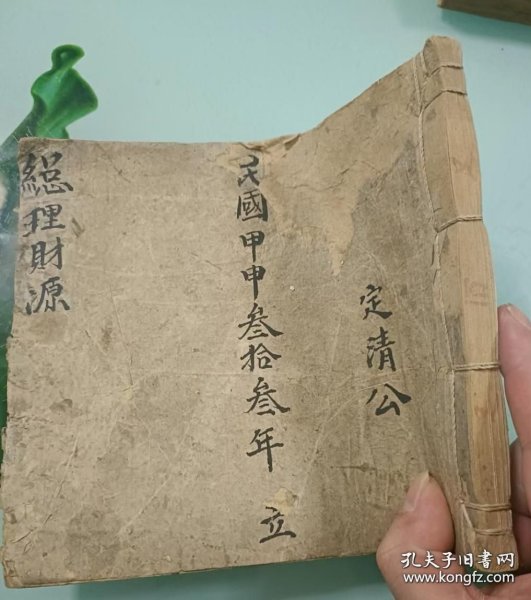 定清公
民國甲申叁拾叁年 立
總理財源
孔夫子旧書网
www.kongfz.com